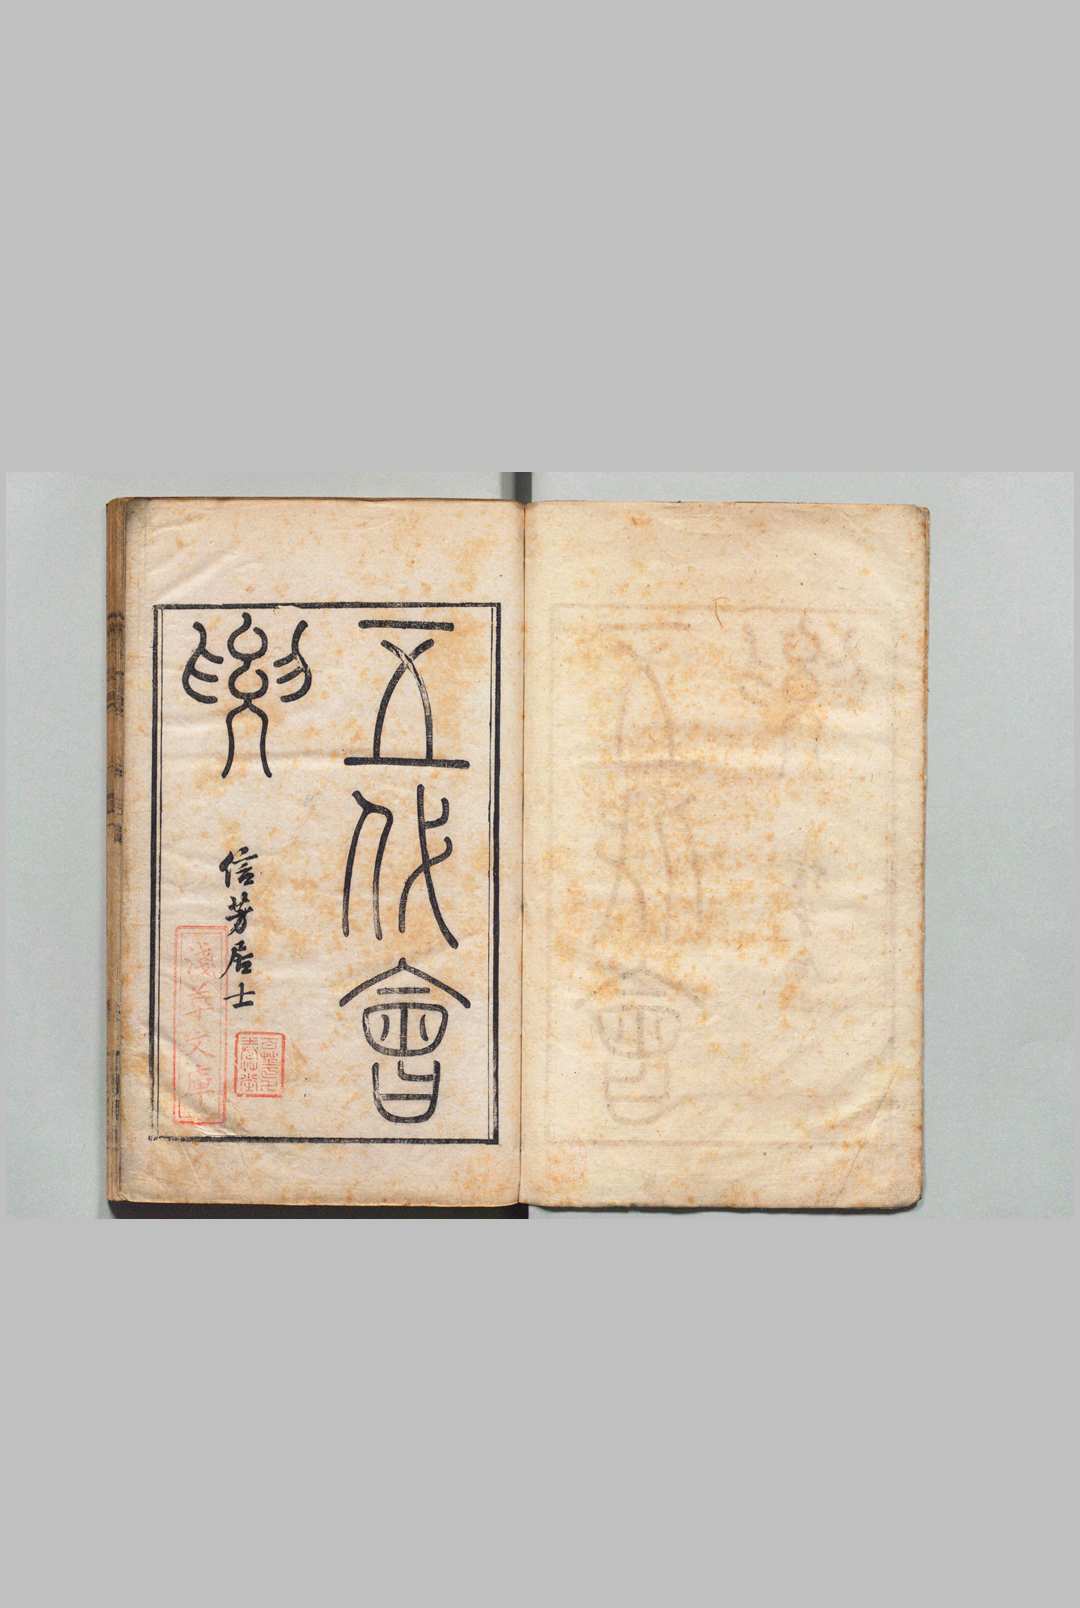 五代會
要
信芳居士
淺草文庫